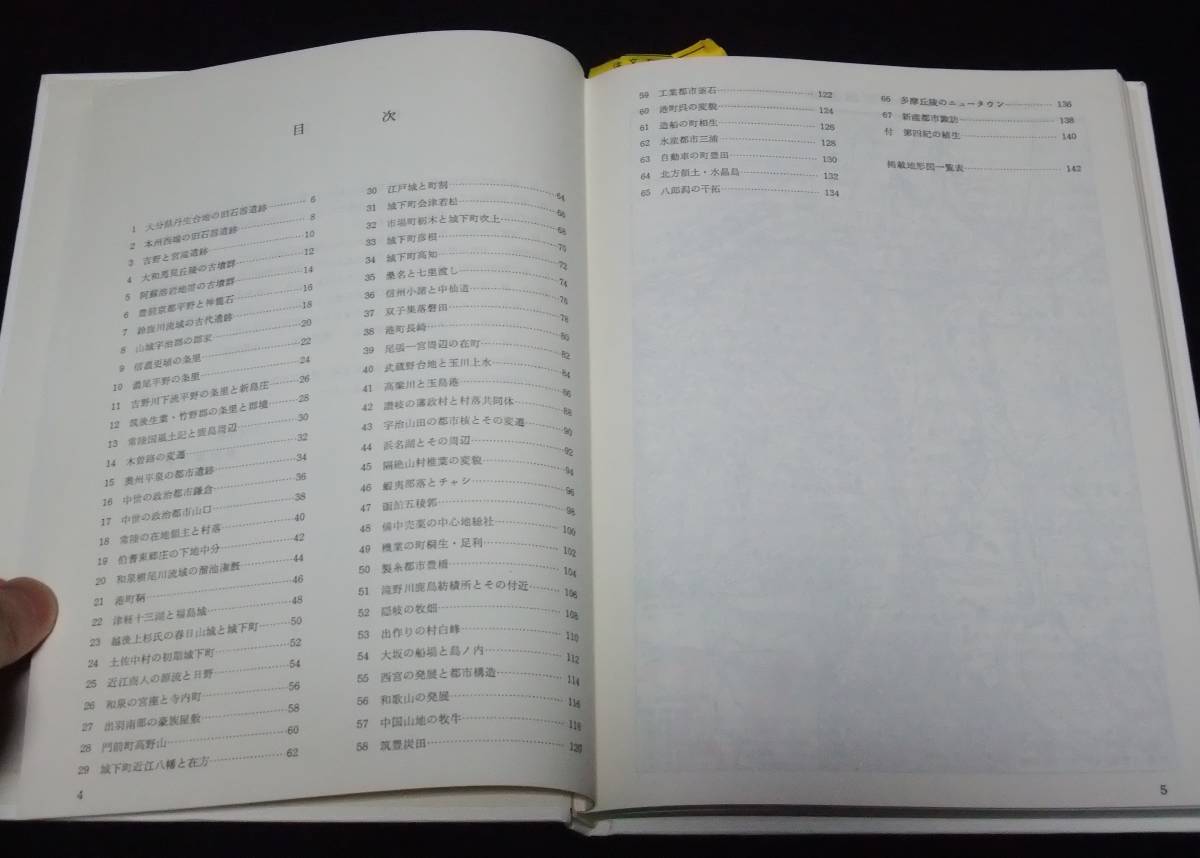 目 次
1 大分県丹生台地の旧石器遺跡 6
2 本州西端の旧石器遺跡 8
3 吉野と宮滝遺跡 10
4 大和馬見丘陵の古墳群 12
5 阿蘇溶岩地帯の古墳群 14
6 豊前京都平野と神籠石 16
7 鈴鹿川流域の古代遺跡 18
8 山城宇治郡の郡家 20
9 信濃更埴の条里 22
10 濃尾平野の条里 24
11 吉野川下流平野の条里と新島庄 26
12 筑後生葉・竹野郡の条里と郡境 28
13 常陸国風土記と鹿島周辺 30
14 木曽路の変遷 32
15 奥州平泉の都市遺跡 34
16 中世の政治都市鎌倉 36
17 中世の政治都市山口 38
18 常陸の在地領主と村落 40
19 伯耆東郷庄の下地中分 42
20 和泉槇尾川流域の溜池潅漑 44
21 港町鞆 46
22 津軽十三湖と福島城 48
23 越後上杉氏の春日山城と城下町 50
24 土佐中村の初期城下町 52
25 近江商人の源流と日野 54
26 和泉の宮座と寺内町 56
27 出羽南部の豪族屋敷 58
28 門前町高野山 60
29 城下町近江八幡と在方 62
30 江戸城と町割 64
31 城下町会津若松 66
32 市場町栃木と城下町吹上 68
33 城下町彦根 70
34 城下町高知 72
35 桑名と七里渡し 74
36 信州小諸と中仙道 76
37 双子集落磐田 78
38 港町長崎 80
39 尾張一宮周辺の在町 82
40 武蔵野台地と玉川上水 84
41 高梁川と玉島港 86
42 讃岐の藩政村と村落共同体 88
43 宇治山田の都市核とその変遷 90
44 浜名湖とその周辺 92
45 隔絶山村椎葉の変貌 94
46 蝦夷部落とチャシ 96
47 函館五稜郭 98
48 備中売薬の中心地総社 100
49 機業の町桐生・足利 102
50 製糸都市豊橋 104
51 滝野川鹿島紡績所とその付近 106
52 隠岐の牧畑 108
53 出作りの村白峰 110
54 大坂の船場と島ノ内 112
55 西宮の発展と都市構造 114
56 和歌山の発展 116
57 中国山地の牧牛 118
58 筑豊炭田 120
4
59 工業都市釜石 122
60 港町呉の変貌 124
61 造船の町相生 126
62 水産都市三浦 128
63 自動車の町豊田 130
64 北方領土・水晶島 132
65 八郎潟の干拓 134
66 多摩丘陵のニュータウン 136
67 新産都市諏訪 138
付 第四紀の植生 140
掲載地形図一覧表 142
5